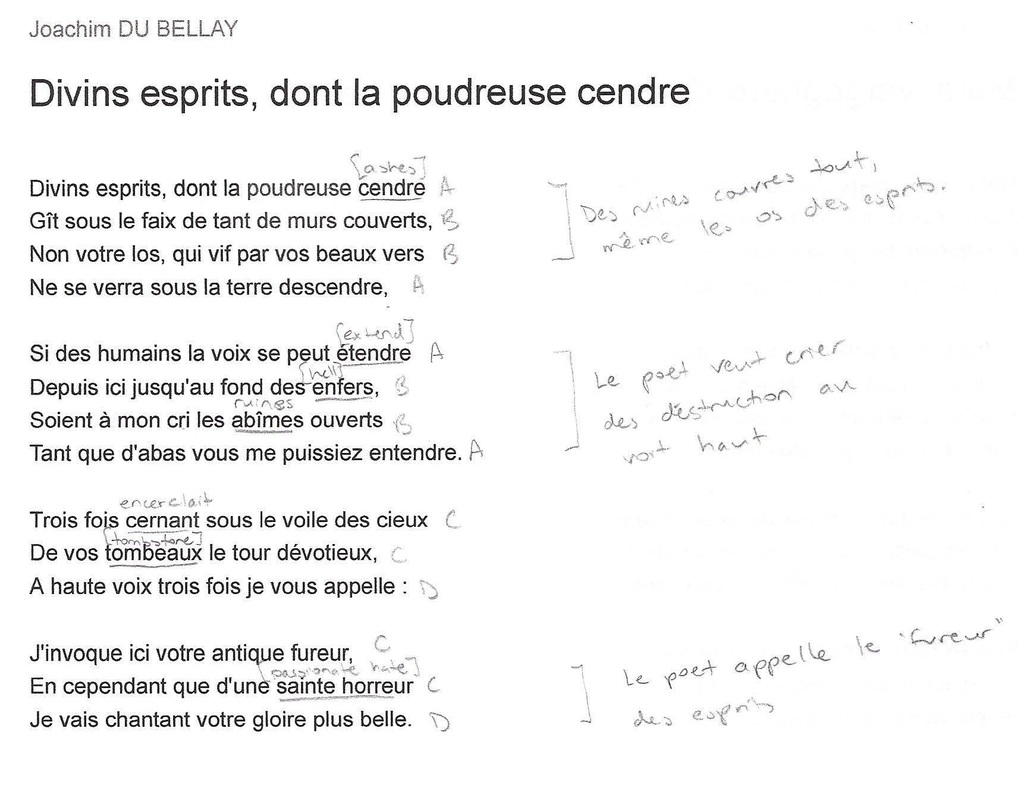 Joachim DU BELLAY
Divins esprits, dont la poudreuse cendre
[ashes]
Divins esprits, dont la poudreuse cendre A
Gît sous le faix de tant de murs couverts, B
Non votre los, qui vif par vos beaux vers B
Ne se verra sous la terre descendre, A
Des ruines couvres tout,
même les os des esprits.
[extend]
Si des humains la voix se peut étendre A
[hell]
Depuis ici jusqu'au fond des enfers, B
ruines
Soient à mon cri les abîmes ouverts B
Tant que d'abas vous me puissiez entendre. A
Le poet veut crier
des destruction au
voit haut
encerclait
Trois fois cernant sous le voile des cieux C
[tombstone]
De vos tombeaux le tour dévotieux, C
A haute voix trois fois je vous appelle : D
J'invoque ici votre antique fureur, C
[passionate hate]
En cependant que d'une sainte horreur C
Je vais chantant votre gloire plus belle. D
Le poet appelle le "fureur"
des esprits